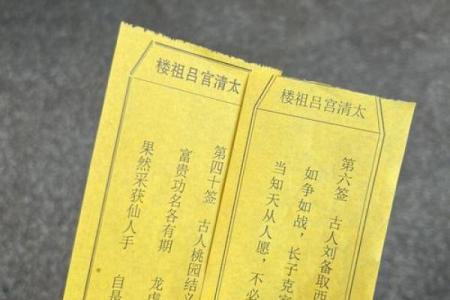 太清宫吕祖楼
第六签 古人刘备取西
如争如战，长子克
当知天从人愿，不必
太清宫吕祖楼
第四十签 古人桃园结义
富贵功名各有期 龙虎
果然采获仙人手 自是